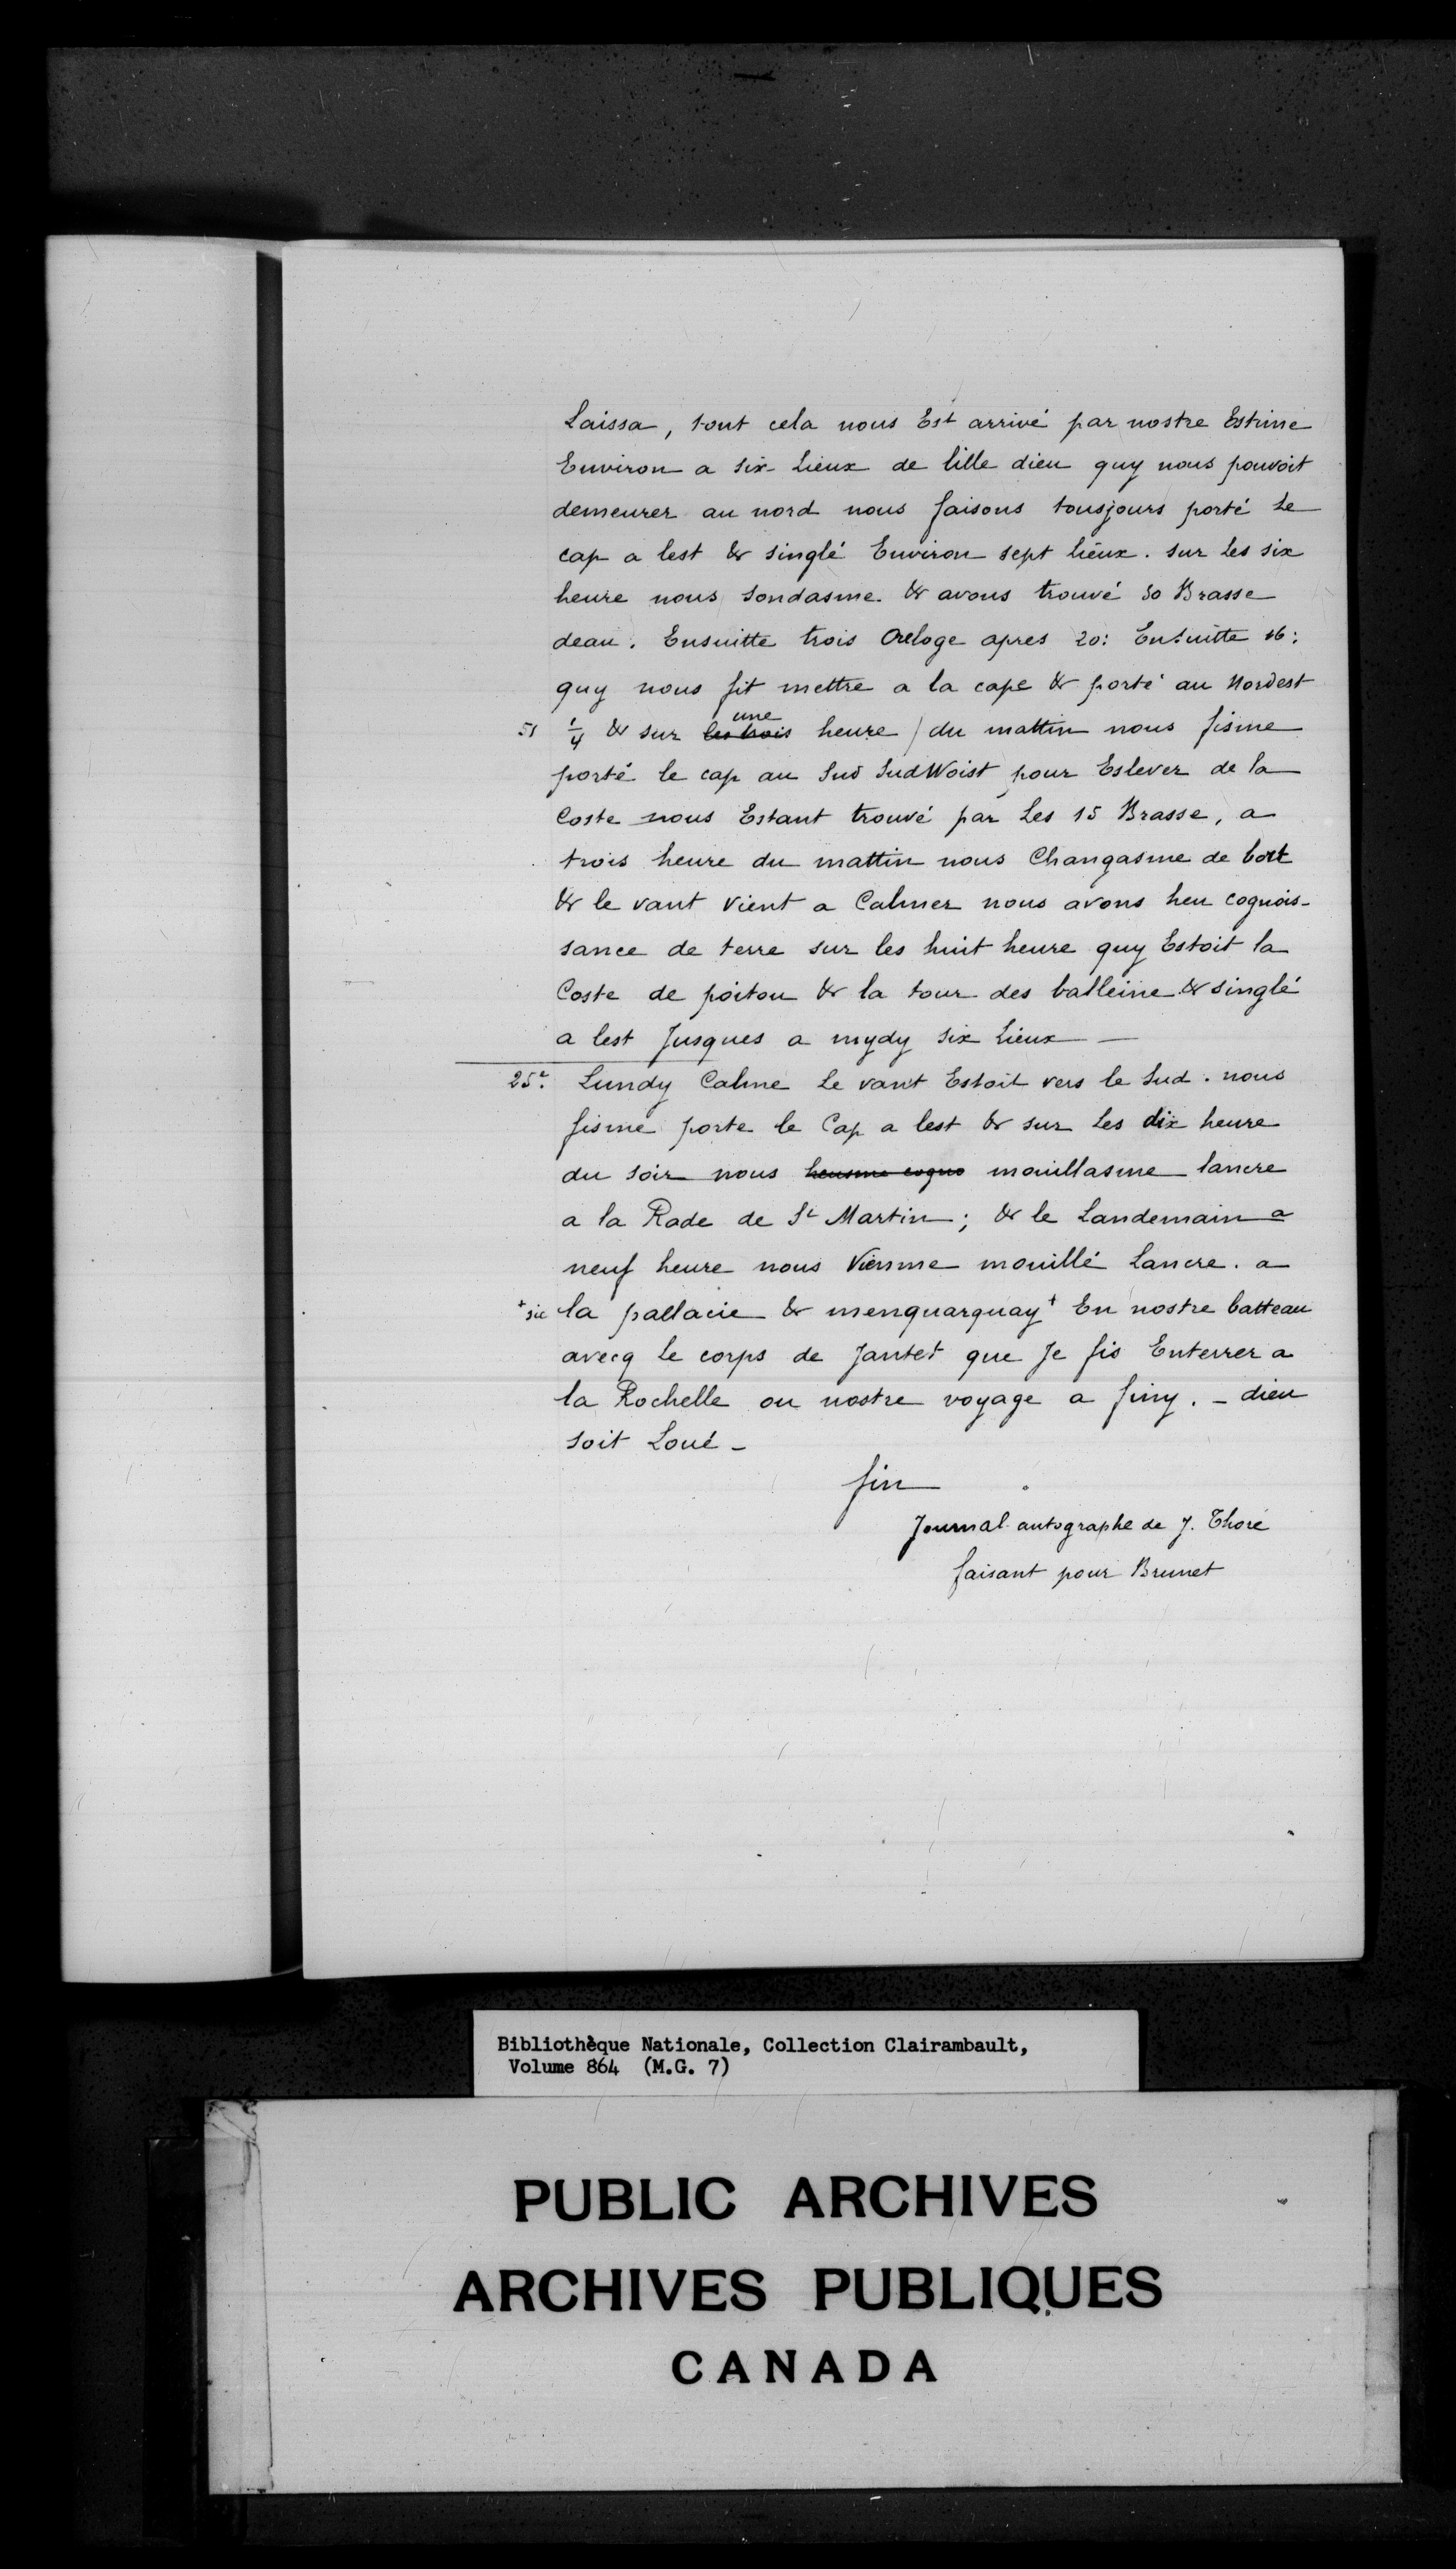 Laissa, tout cela nous Est arrivé par nostre Estime
Environ a six Lieux de lille dieu quy nous pouvoit
demeurer au nord nous faisons tousjours porté Le
cap a lest & singlé Environ sept lieux. sur Les six
heure nous sondasme. & avons trouvé 30 Brasse
deau. Ensuitte trois Oreloge apres 20: Ensuitte 16:
quy nous fit mettre a la cape & porté au Nordest
51 1/4 & sur les trois une heure / du mattin nous fisme
porté le cap au Sud SudWoist pour Eslever de la
Coste nous Estant trouvé par Les 15 Brasse, a
trois heure du mattin nous Changasme de bort
& le vant vient a Calmer nous avons heu cognois-
sance de terre sur les huit heure quy Estoit la
Coste de poitou & la tour des balleine & singlé
a lest Jusques a mydy six Lieux —
25e. Lundy Calme Le vant Estoit vers le Sud. nous
fisme porte le Cap a lest & sur Les dix heure
du soir nous heusme cogno mouillasme lancre
a la Rade de St Martin; & le Landemain a
neuf heure nous Vienme mouillé Lancre. a
+ sic la pallacie & menquarquay + En nostre batteau
avecq Le corps de Jantet que Je fis Enterrer a
la Rochelle ou nostre voyage a finy. - dieu
soit Loué -
fin
Journal autographe de J. Thoré
faisant pour Brunet
Bibliothèque Nationale, Collection Clairambault,
Volume 864 (M.G. 7)
PUBLIC ARCHIVES
ARCHIVES PUBLIQUES
CANADA